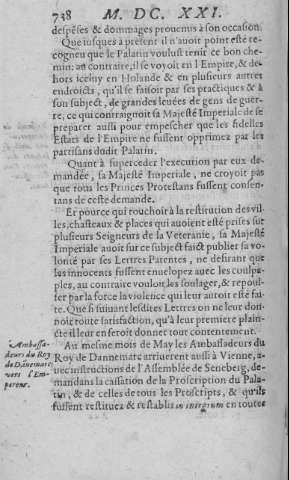 738 M. DC. XXI.
despẽses & dommages prouenus à son occasion.
Que iusques à present il n'auoit point esté re-
cogneu que le Palatin voulust tenir ce bon che-
min: au contraire, il se voyoit en l'Empire, & de-
hors iceluy en Holande & en plusieurs autres
endroicts, qu'il se faisoit par ses practiques & à
son subject, de grandes leuées de gens de guer-
re, ce qui contraignoit sa Majesté Imperiale de se
preparer aussi pour empescher que les fidelles
Estats de l'Empire ne fussent opprimez par les
partisans dudit Palatin.
Quant à superceder l'execution par eux de-
mandée, sa Majesté Imperiale, ne croyoit pas
que tous les Princes Protestans fussent consen-
tans de ceste demande.
Et pource qui touchoit à la restitution des vil-
les, chasteaux & places qui auoient esté prises sur
plusieurs Seigneurs de la Veteranie, sa Majesté
Imperiale auoit sur ce subject faict publier sa vo-
lonté par ses Lettres Patentes, ne desirant que
les innocents fussent enuelopez auec les coulpa-
bles, au contraire vouloit les soulager, & repous-
ser par la force la violence qui leur auroit esté fai-
te. Que si suiuant lesdites Lettres on ne leur don-
noit toute satisfaction, qu'à leur premiere plain-
cte il leur en feroit donner tout contentement.
Au mesme mois de May les Ambassadeurs du
Roy de Dannemarc arriuerent aussi à Vienne, a-
uec instructions de l'Assemblée de Segeberg, de-
mandans la cassation de la Proscription du Pala-
tin, & de celles de tous les Proscripts, & qu'ils
fussent restituez & restablis in integrum en toutes
Ambassa-
deurs du Roy
de Dānemarc
vers l'Em-
pereur.